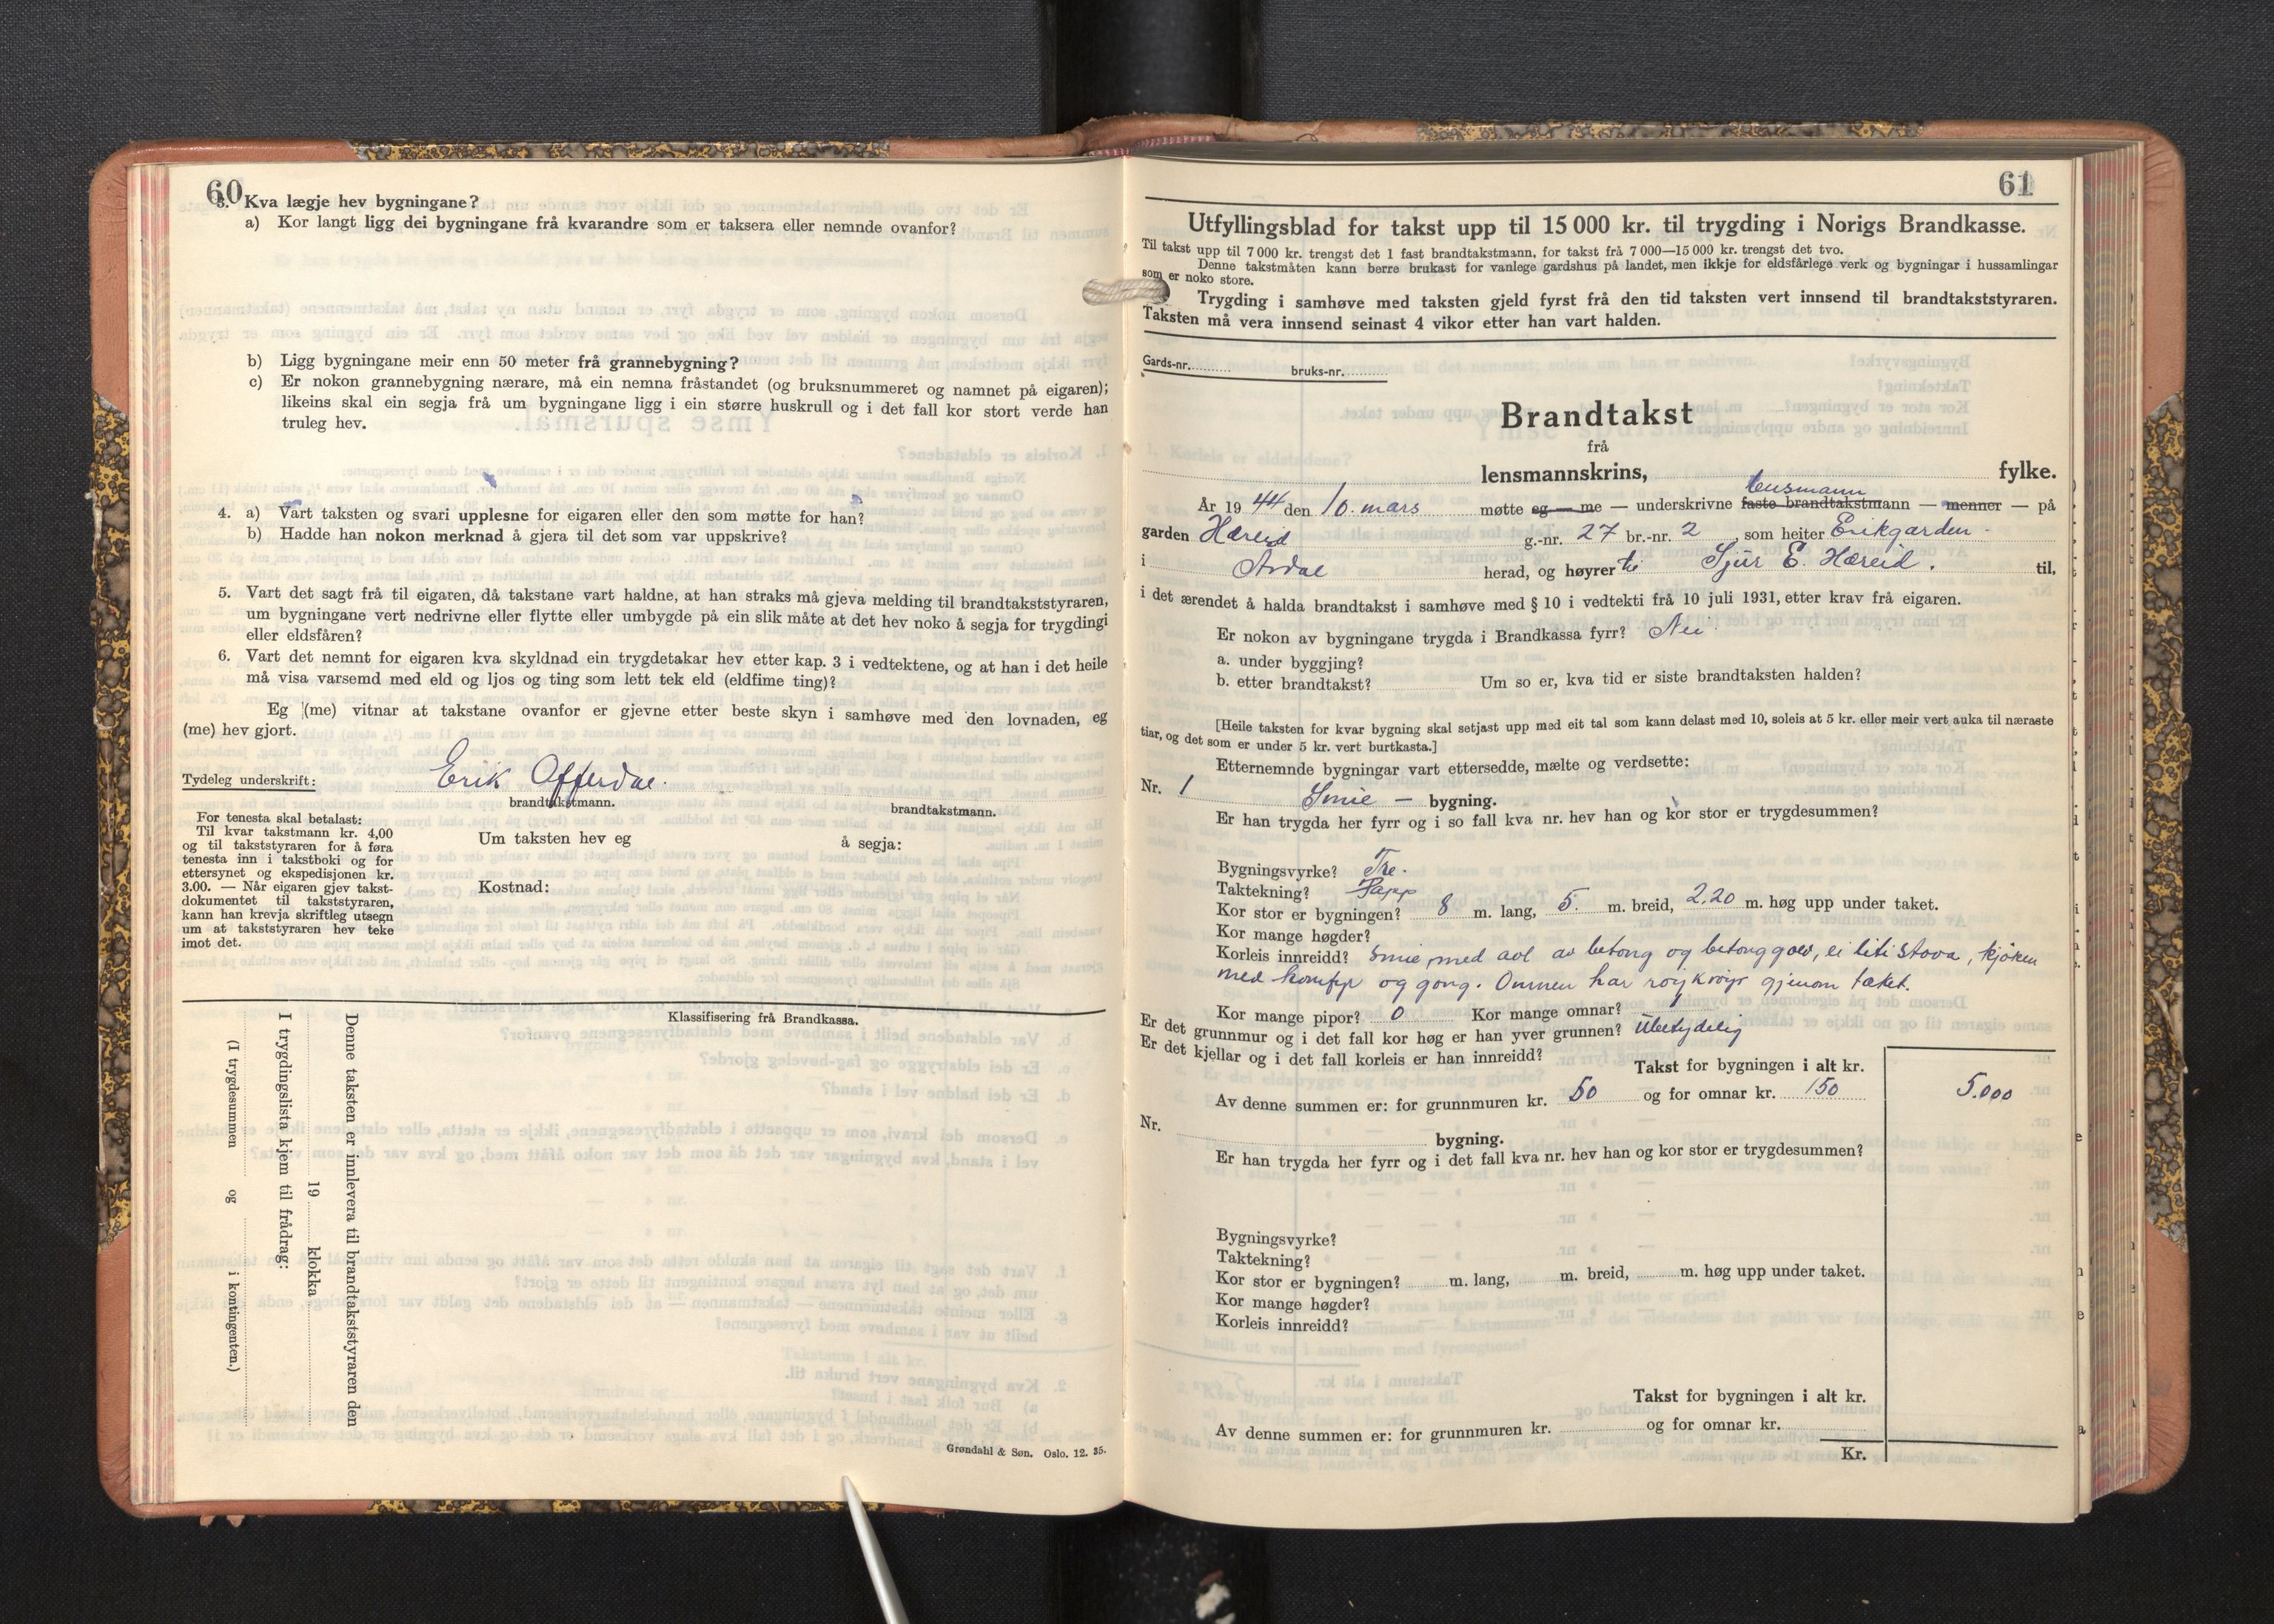 60
3. Kva lægje hev bygningane?
a) Kor langt ligg dei bygningane frå kvarandre som er taksera eller nemnde ovanfor?
b) Ligg bygningane meir enn 50 meter frå grannebygning?
c) Er nokon grannebygning nærare, må ein nemna fråstandet (og bruksnummeret og namnet på eigaren);
likeins skal ein segja frå um bygningane ligg i ein større huskrull og i det fall kor stort verde han
truleg hev.
4. a) Vart taksten og svari upplesne for eigaren eller den som møtte for han?
b) Hadde han nokon merknad å gjera til det som var uppskrive?
5. Vart det sagt frå til eigaren, då takstane vart haldne, at han straks må gjeva melding til brandtakststyraren,
um bygningane vert nedrivne eller flytte eller umbygde på ein slik måte at det hev noko å segja for trygdingi
eller eldsfåren?
6. Vart det nemnt for eigaren kva skyldnad ein trygdetakar hev etter kap. 3 i vedtektene, og at han i det heile
må visa varsemd med eld og ljos og ting som lett tek eld (eldfime ting)?
Eg (me) vitnar at takstane ovanfor er gjevne etter beste skyn i samhøve med den lovnaden, eg
(me) hev gjort.
Tydeleg underskrift: Erik Offerdal.
brandtakstmann. brandtakstmann.
For tenesta skal betalast:
Til kvar takstmann kr. 4,00
og til takststyraren for å føra
tenesta inn i takstboki og for
ettersynet og ekspedisjonen kr.
3.00. — Når eigaren gjev takst-
dokumentet til takststyraren,
kann han krevja skriftleg utsegn
um at takststyraren hev teke
imot det.
Um taksten hev eg å segja:
Kostnad:
Klassifisering frå Brandkassa.
Denne taksten er innlevera til brandtakststyraren den
19 klokka
I trygdingslista kjem til frådrag:
(I trygdesummen og i kontingenten.)
Grøndahl & Søn. Oslo. 12. 35.
61
Utfyllingsblad for takst upp til 15 000 kr. til trygding i Norigs Brandkasse.
Til takst upp til 7 000 kr. trengst det 1 fast brandtakstmann, for takst frå 7 000—15 000 kr. trengst det tvo.
Denne takstmåten kann berre brukast for vanlege gardshus på landet, men ikkje for eldsfårlege verk og bygningar i hussamlingar
som er noko store.
Trygding i samhøve med taksten gjeld fyrst frå den tid taksten vert innsend til brandtakststyraren.
Taksten må vera innsend seinast 4 vikor etter han vart halden.
Gards-nr. bruks-nr.
Brandtakst
frå
lensmannskrins, fylke.
lensmann
År 1944 den 10. mars møtte eg — me — underskrivne faste brandtakstmann — menner — på
garden Hæreid g.-nr. 27 br.-nr. 2, som heiter Erikgarden
i Årdal herad, og høyrer til Sjur E. Hæreid. til,
i det ærendet å halda brandtakst i samhøve med § 10 i vedtekti frå 10 juli 1931, etter krav frå eigaren.
Er nokon av bygningane trygda i Brandkassa fyrr? Nei
a. under byggjing?
b. etter brandtakst? Um so er, kva tid er siste brandtaksten halden?
[Heile taksten for kvar bygning skal setjast upp med eit tal som kann delast med 10, soleis at 5 kr. eller meir vert auka til næraste
tiar, og det som er under 5 kr. vert burtkasta.]
Etternemnde bygningar vart ettersedde, mælte og verdsette:
Nr. 1 Smie — bygning.
Er han trygda her fyrr og i so fall kva nr. hev han og kor stor er trygdesummen?
Bygningsvyrke? Tre.
Taktekning? Papp
Kor stor er bygningen? 8 m. lang, 5. m. breid, 2.20 m. høg upp under taket.
Kor mange høgder?
Korleis innreidd? Smie, med avl av betong og betonggolv, ei liti stova, kjøken
med komfyr og gong. Omnen har røykrøyr gjenom taket.
Kor mange pipor? 0 Kor mange omnar?
Er det grunnmur og i det fall kor høg er han yver grunnen? Ubetydelig
Er det kjellar og i det fall korleis er han innreidd?
Takst for bygningen i alt kr. 5.000
Av denne summen er: for grunnmuren kr. 50 og for omnar kr. 150
Nr. bygning.
Er han trygda her fyrr og i det fall kva nr. hev han og kor stor er trygdesummen?
Bygningsvyrke?
Taktekning?
Kor stor er bygningen? m. lang, m. breid, m. høg upp under taket.
Kor mange høgder?
Korleis innreidd?
Takst for bygningen i alt kr.
Av denne summen er: for grunnmuren kr. og for omnar kr.
Kr.